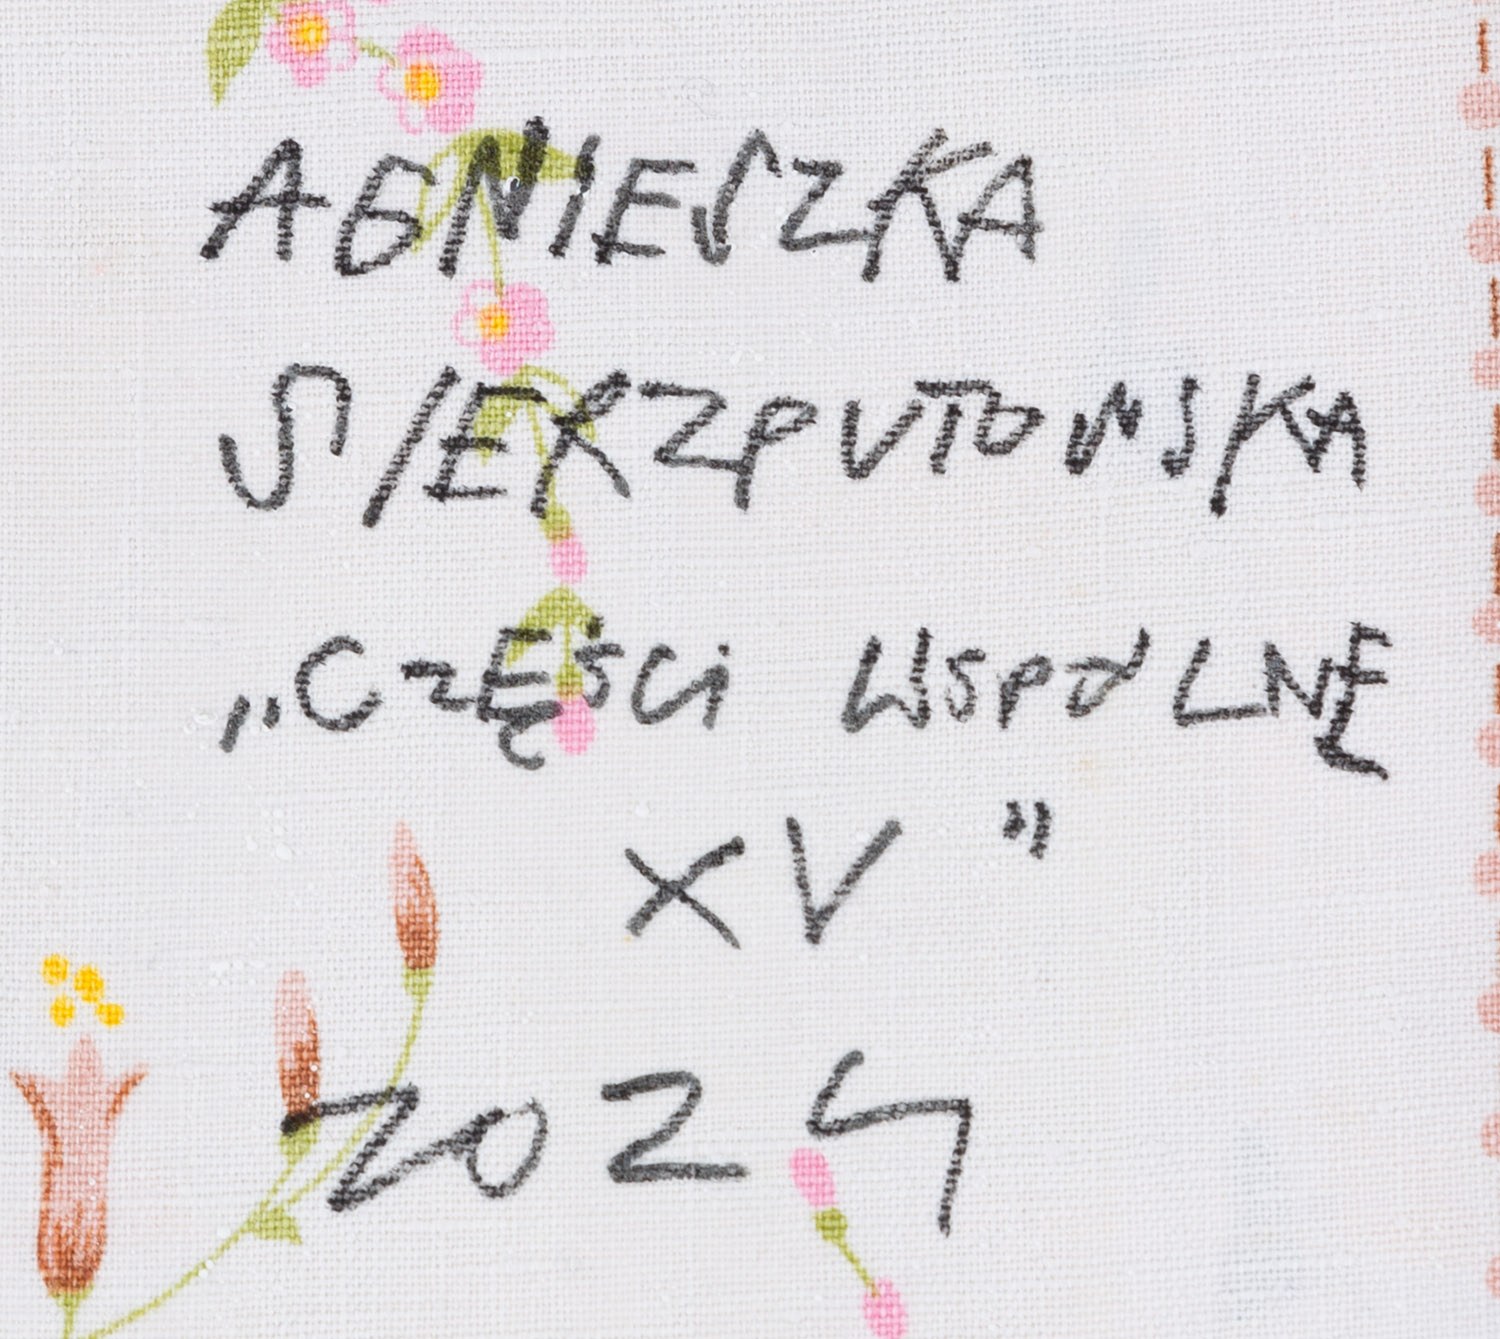 AGNIESZKA
SIERZPUTOWSKA
„CZĘŚCI WSPÓLNĘ
XV”
2024